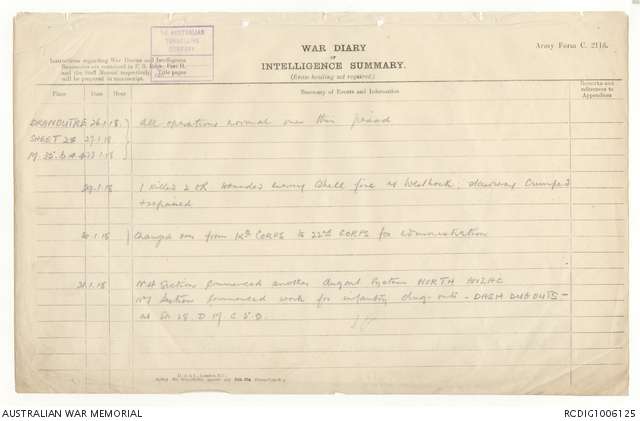 AUSTRALIAN
TUNNELLING
COMPANY
Instructions regarding War Diaries and Intelligence
Summaries are contained in F. S. Regs., Part II.
and the Staff Manual respectively. Title pages
will be prepared in manuscript.
WAR DIARY
OR
INTELLIGENCE SUMMARY.
(Erase heading not required.)
Army Form C. 2118.
Place Date Hour Summary of Events and Information Remarks and references to Appendices
DRANOUTRE 26.1.18 All operations normal over this period
SHEET 28 27.1.18
M. 35. 28.1.18
29.1.18 1 killed 2 OR wounded enemy shell fire at Westhoek; stairway crumped
+ repaired
30.1.18 Changed over from IXth CORPS to 22nd CORPS for administration
31.1.18 No 4 Section commenced another dugout system NORTH
No 1 Section commenced work for infantry dug-outs - DASH DUGOUTS -
at Sh 28 D
AUSTRALIAN WAR MEMORIAL
RCDIG1006125